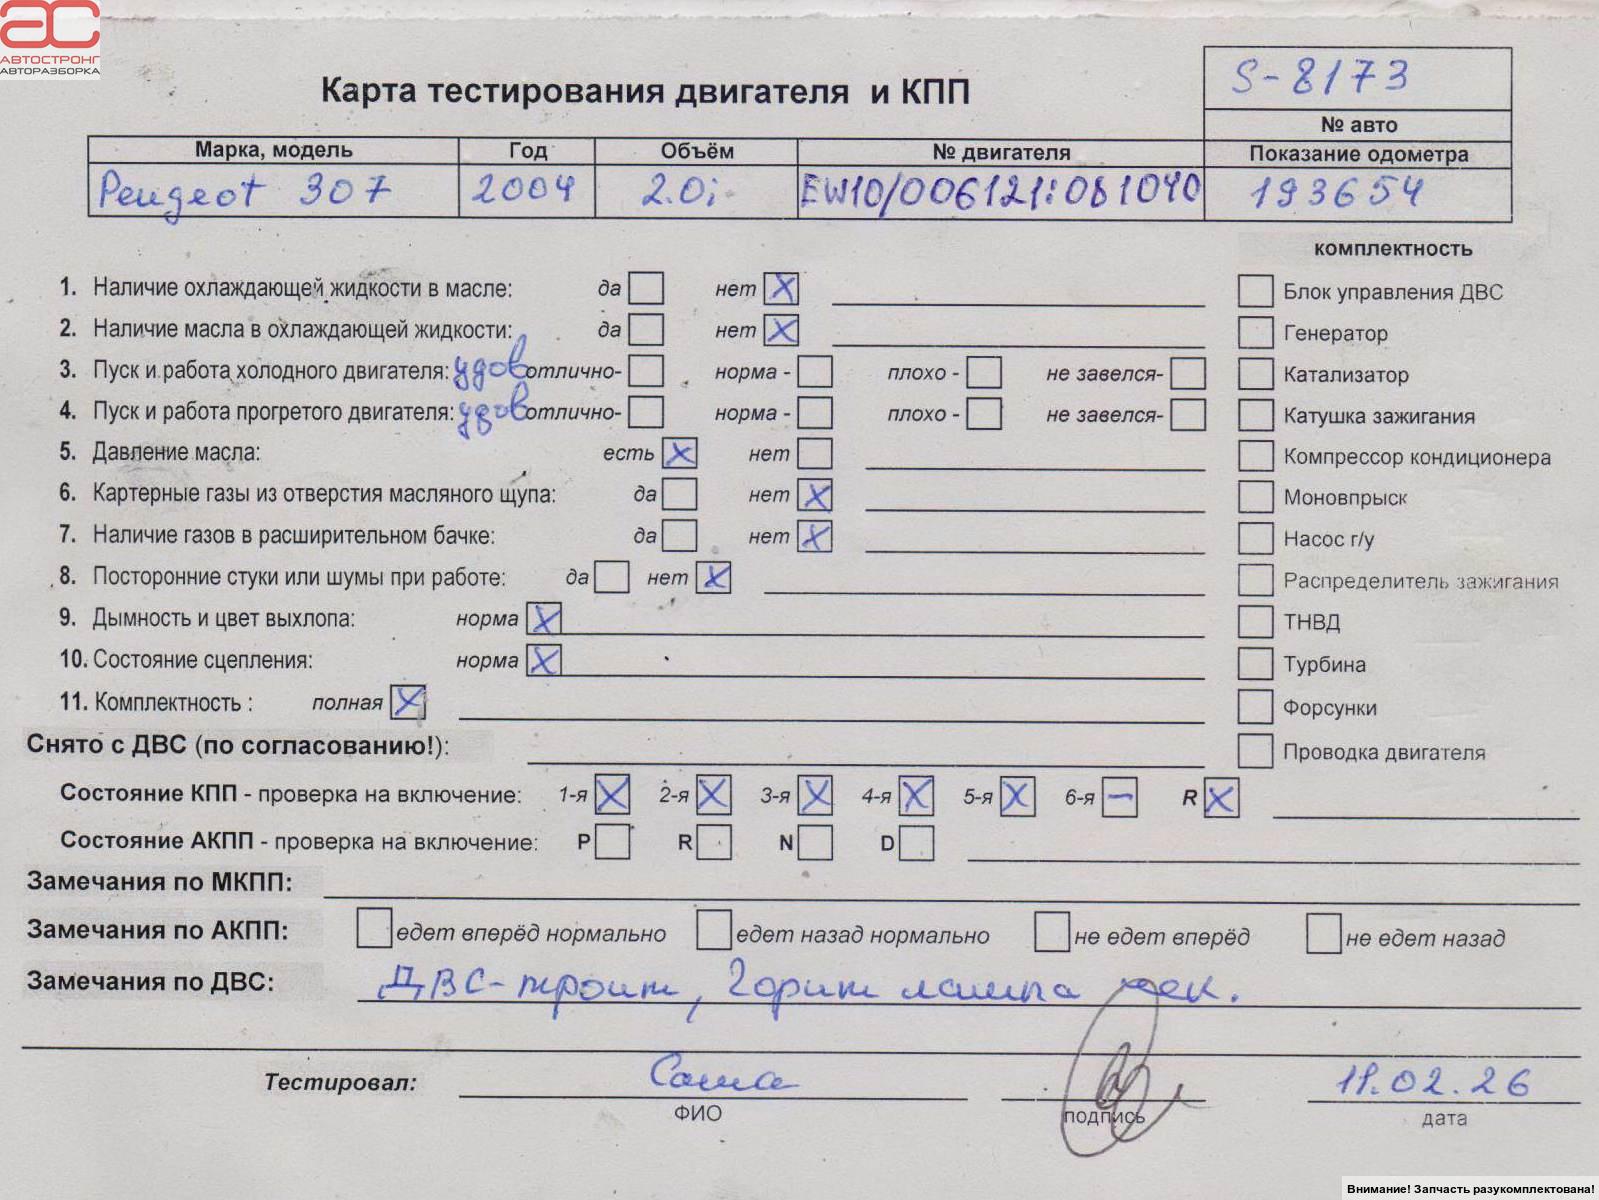 АС
АВТОСТРОНГ
АВТОРАЗБОРКА
S-8173
Карта тестирования двигателя и КПП
№ авто
Марка, модель Год Объём № двигателя Показание одометра
Peugeot 307 2004 2.0i EW10/006121:081040 193654
комплектность
1. Наличие охлаждающей жидкости в масле: да нет X Блок управления ДВС
2. Наличие масла в охлаждающей жидкости: да нет X Генератор
3. Пуск и работа холодного двигателя: удов отлично- норма - плохо - не завелся- Катализатор
4. Пуск и работа прогретого двигателя: удов отлично- норма - плохо - не завелся- Катушка зажигания
5. Давление масла: есть X нет Компрессор кондиционера
6. Картерные газы из отверстия масляного щупа: да нет X Моновпрыск
7. Наличие газов в расширительном бачке: да нет X Насос г/у
8. Посторонние стуки или шумы при работе: да нет X Распределитель зажигания
9. Дымность и цвет выхлопа: норма X ТНВД
10. Состояние сцепления: норма X Турбина
11. Комплектность : полная X Форсунки
Снято с ДВС (по согласованию!): Проводка двигателя
Состояние КПП - проверка на включение: 1-я X 2-я X 3-я X 4-я X 5-я X 6-я — R X
Состояние АКПП - проверка на включение: P R N D
Замечания по МКПП:
Замечания по АКПП: едет вперёд нормально едет назад нормально не едет вперёд не едет назад
Замечания по ДВС: ДВС-троит, горит лампа чек.
Тестировал: Саша 11.02.26
ФИО подпись дата
Внимание! Запчасть разукомплектована!